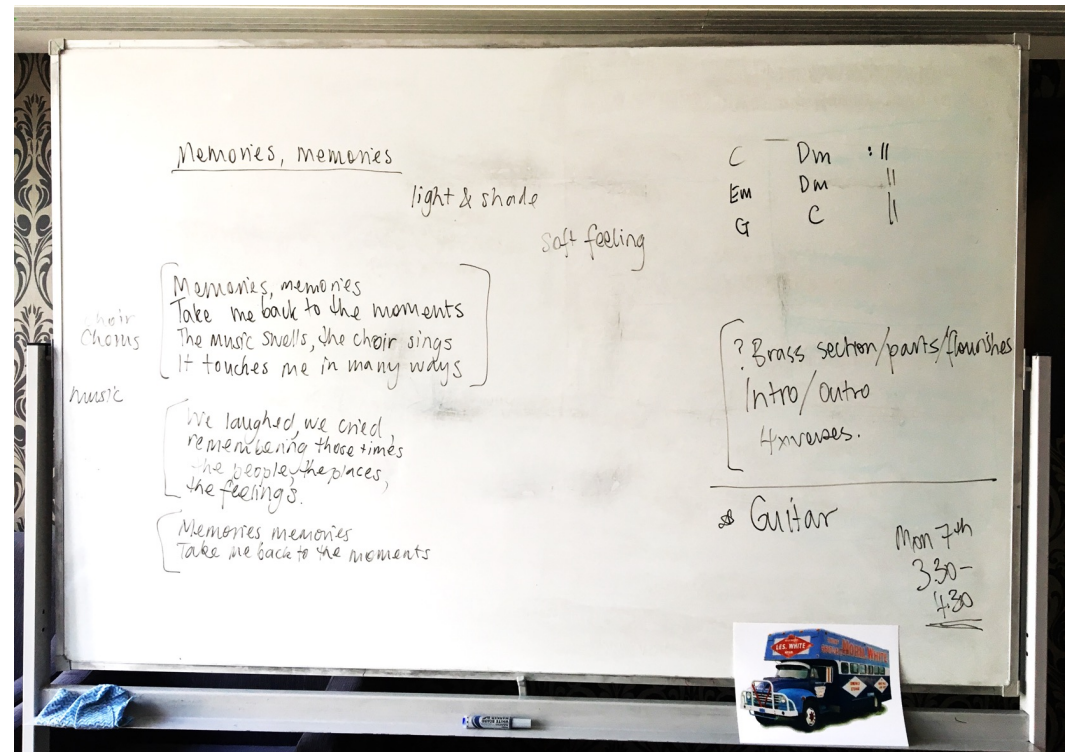 Memories, memories
light & shade
soft feeling
choir
Chorus
music
Memories, memories
Take me back to the moments
The music swells, the choir sings
It touches me in many ways
We laughed, we cried,
remembering those times
the people, the places,
the feelings.
Memories memories
Take me back to the moments
C Dm :||
Em Dm ||
G C ||
? Brass section/parts/flourishes
Intro/Outro
4xverses.
Guitar
Mon 7th
3.30-
4.30
LES. WHITE